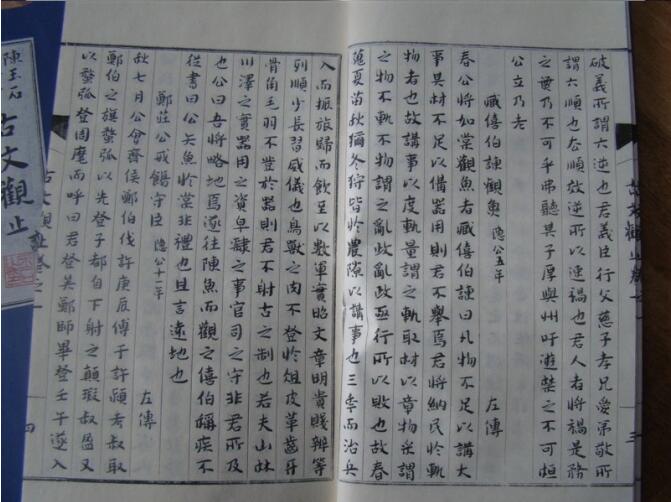 三
破義所謂六逆也君義臣行父慈子孝兄愛弟敬所
謂六順也去順效逆所以速禍也君人者將禍是務
之乃不可乎弗聽其子厚與州吁遊禁之不可桓
公立乃老
臧僖伯諫觀魚 隱公五年 左傳
春公將如棠觀魚者臧僖伯諫曰凡物不足以講大
事其材不足以備器用則君不舉焉君將納民於軌
物者也故講事以度軌量謂之軌取材以章物采謂
之物不軌不物謂之亂政亂政亟行所以敗也故春
蒐夏苗秋獮冬狩皆於農隙以講事也三年而治兵
入而振旅歸而飲至以數軍實昭文章明貴賤辨等
列順少長習威儀也鳥獸之肉不登於俎皮革齒牙
骨角毛羽不登於器則君不射古之制也若夫山林
川澤之實器用之資皁隸之事官司之守非君所及
也公曰吾將略地焉遂往陳魚而觀之僖伯稱疾不
從書曰公矢魚於棠非禮也且言遠地也
鄭莊公戒飭守臣 隱公十一年 左傳
秋七月公會齊侯鄭伯伐許庚辰傅于許潁考叔取
鄭伯之旗蝥弧以先登子都自下射之顛瑕叔盈又
以蝥弧登周麾而呼曰君登矣鄭師畢登壬午遂入
古文觀止卷之一 四
古文觀止